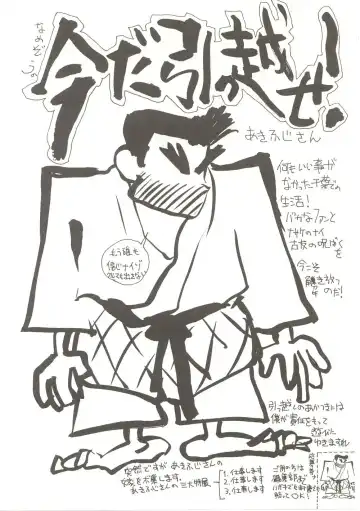 なめぞうの
今だ引っ越せ!
あきふじさん
何もいい事が
なかった千葉での
生活!
バカなファンと
ナサケのナイ
古友の呪ばくを
今こそ
解き放つ
のだ!
もう誰も
信じナイゾ
引っ越しのあかつきには
僕が責任をもって
突然ですが あきふじさんの
嫁を募集します。
あきふじさんの三大特徴
1.仕事します
2.仕事します
3.仕事します